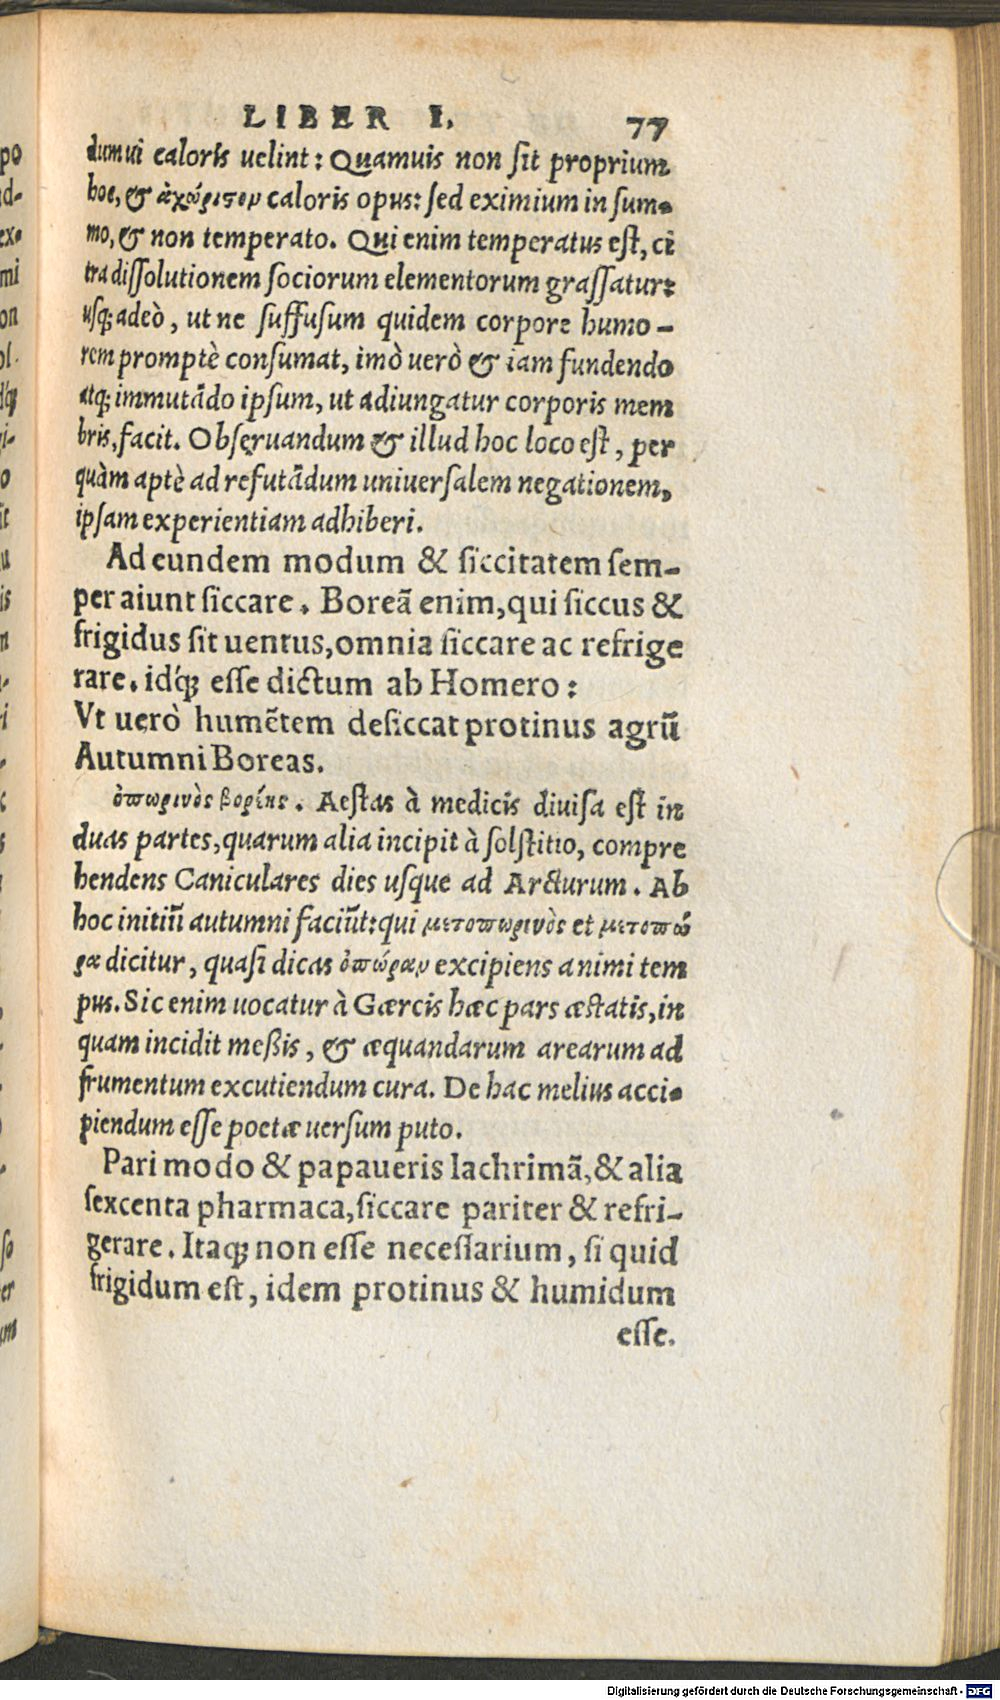 LIBER I. 77
dum ui caloris uelint: Quamuis non sit proprium
hoc, & ἀχώριστον caloris opus: sed eximium in sum-
mo, & non temperato. Qui enim temperatus est, ci
tra dissolutionem sociorum elementorum grassatur:
usq; adeò, ut ne suffusum quidem corpore humo-
rem promptè consumat, imò uerò & iam fundendo
atq; immutãdo ipsum, ut adiungatur corporis mem
bris, facit. Obseruandum & illud hoc loco est, per
quàm aptè ad refutãdum uniuersalem negationem,
ipsam experientiam adhiberi.
Ad eundem modum & siccitatem sem-
per aiunt siccare. Boreã enim, qui siccus &
frigidus sit uentus, omnia siccare ac refrige
rare. idq́; esse dictum ab Homero:
Vt uerò humẽtem desiccat protinus agrũ
Autumni Boreas.
ὀπωρινὸς βορέης. Aestas à medicis diuisa est in
duas partes, quarum alia incipit à solstitio, compre
hendens Caniculares dies usque ad Arcturum. Ab
hoc initiũ autumni faciũt: qui μετοπωρινὸς et μετοπώ
ρα dicitur, quasi dicas ὀπώραν excipiens animi tem
pus. Sic enim uocatur à Gærcis hæc pars æstatis, in
quam incidit meßis, & æquandarum arearum ad
frumentum excutiendum cura. De hac melius acci-
piendum esse poetæ uersum puto.
Pari modo & papaueris lachrimã, & alia
sexcenta pharmaca, siccare pariter & refri-
gerare. Itaq; non esse necessarium, si quid
frigidum est, idem protinus & humidum
esse.
Digitalisierung gefördert durch die Deutsche Forschungsgemeinschaft - DFG